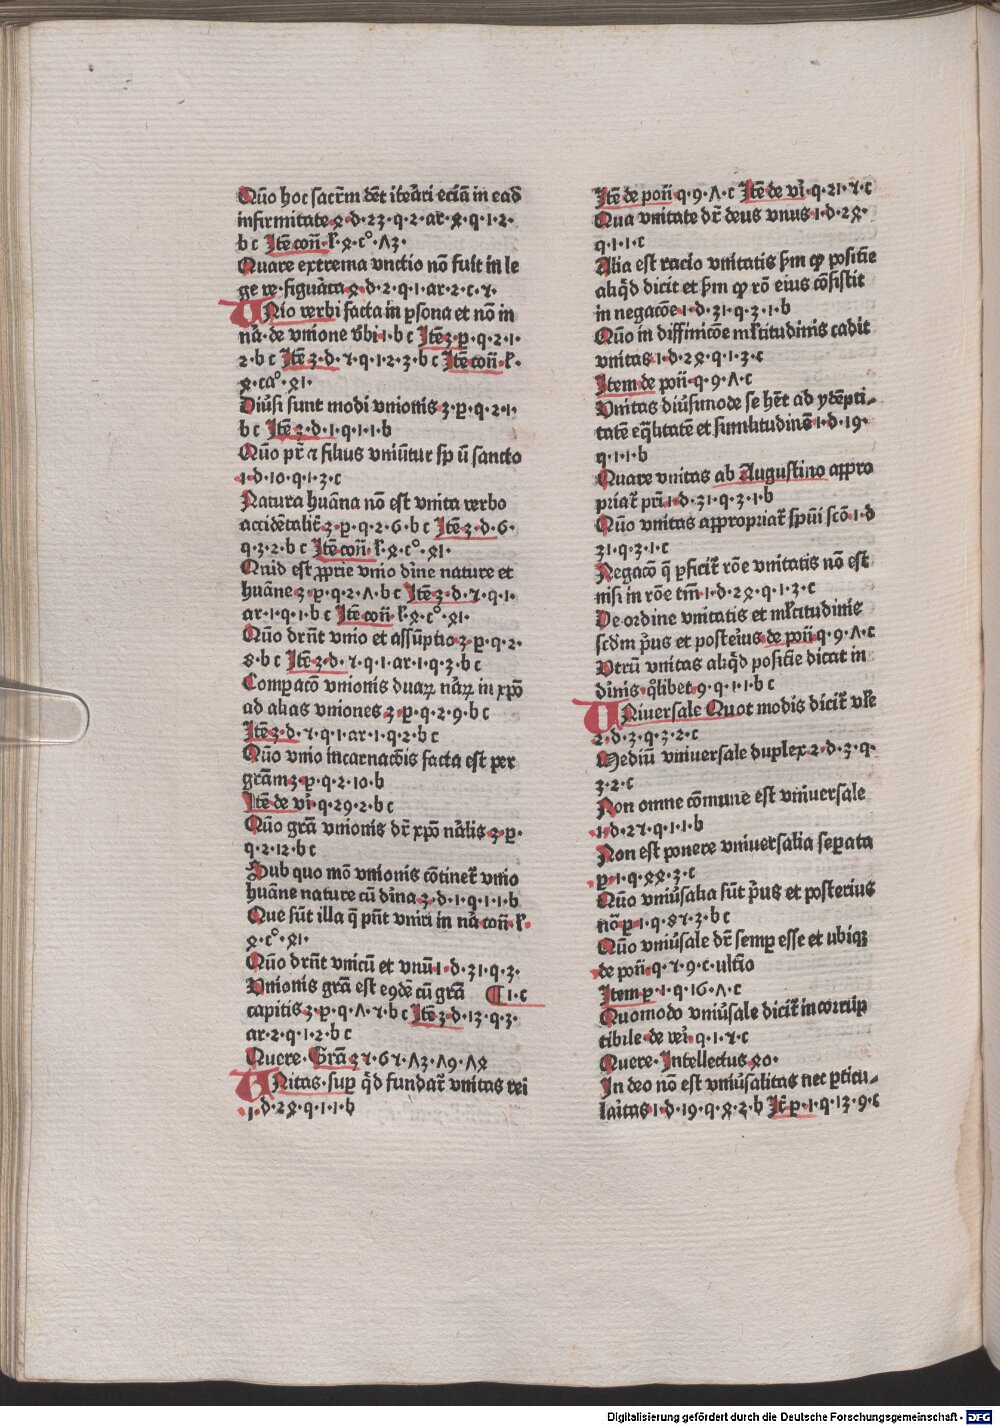 Quo͞ hoc sacr̄m det̄ iteāri eciā in ead
infirmitate 4·d·23·q·2·ar·4·q·1·2·
b c Itē con̄·l̄·4·c°·53·
Quare extrema vnctio nō fuit in le
ge ve·figuāta 4·d·2·q·1·ar·2·c·7·
VNio verbi facta in ꝑsona et nō in
nā·de vnione v̄bi·1·b c Itē 3·p·q·2·1·
2·b c Itē 3·d·7·q·1·2·3·b c Itē con̄·l̄·
4·ca°·41·
Diūsi sunt modi vnionis 3·p·q·2·1·
b c Itē 3·d·1·q·1·1·b
Quō pr̄ ⁊ filius vniūtur sp̄ ū sancto
1·d·10·q·1·3·c
Natura huāna nō est vnita verbo
accidētalit̄ 3·p·q·2·6·b c Itē 3·d·6·
q·3·2·b c Itē con̄·l̄·4·c°·41·
Quid est ꝓprie vnio dīne nature et
huāne 3·p·q·2·5·b c Itē 3·d·7·q·1·
ar·1·q·1·b c Itē con̄·l̄·4·c°·41·
Quō drn̄t vnio et assūptio 3·p·q·2·
8·b c Itē 3·d·7·q·1·ar·1·q·3·b c
Comꝑacō vnionis duaꝝ nāꝝ in xp̄o
ad alias vniones 3·p·q·2·9·b c
Itē 3·d·7·q·1·ar·1·q·2·b c
Quō vnio incarnacōis facta est per
grām 3·p·q·2·10·b
Itē de vī·q·29·2·b c
Quō grā vnionis dr̄ xp̄o nālis 3·p·
q·2·12·b c
Sub quo mō vnionis cōtinet̄ vnio
huāne nature cū dīna 3·d·1·q·1·1·b
Que sūt illa q̄ pn̄t vniri in nā con̄·l̄·
4·c°·41·
Quō drn̄t vnicū et vnū 1·d·31·q·3·
Vnionis grā est eꝯdē cū grā ¶ 1·c
capitis 3·p·q·5·7·b c Itē 3·d·13·q·3·
ar·2·q·1·2·b c
Quere·Grā 37·67·53·59·54
VNitas·suꝑ q̄d fundat̄ vnitas rei
1·d·24·q·1·1·b
Itē de pon̄·q·9·5·c Itē de vī·q·21·7·c
Qua vnitate dr̄ deus vnus 1·d·24·
q·1·1·c
Alia est racio vnitatis s̄m ꝙ positīe
aliq̄d dicit et s̄m ꝙ rō eius cōsistit
in negacōe 1·d·31·q·3·1·b
Quō in diffinicōe ml̄titudinis cadit
vnitas 1·d·24·q·1·3·c
Item de pon̄·q·9·5·c
Vnitas diūsimode se hēt ad ydēpti-
tatē eq̄litatē et similitudinē 1·d·19·
q·1·1·b
Quare vnitas ab Augustino appro
priat̄ pri̅ 1·d·31·q·3·1·b
Quō vnitas appropriat̄ spūi scō 1·d
31·q·3·1·c
Negacō q̄ ꝑficit̄ rōe vnitatis nō est
nisi in rōe tm̄ 1·d·24·q·1·3·c
De ordine vnitatis et ml̄titudinis
scdm p̄us et posteīus de pon̄ q·9·5·c
Vtrū vnitas aliq̄d positīe dicat in
dīnis q̊libet 9·q·1·1·b c
VNiuersale Quot modis dicit̄ vl̄e
2·d·3·q·3·2·c
Mediū vniuersale duplex 2·d·3·q·
3·2·c
Non omne cōmune est vniuersale
1·d·27·q·1·1·b
Non est ponere vniuersalia seꝑata
p·1·q·44·3·c
Quō vniūsalia sūt p̄us et posterius
nō p·1·q·87·3·b c
Quō vniūsale dr̄ semꝑ esse et ubiqꝫ
de pon̄·q·7·9·c·ultīo
Item p·1·q·16·5·c
Quomodo vniūsale dicit̄ incorrup
tibile·de vei̅·q·1·7·c
Quere·Intellectus 40·
In deo nō est vniūsalitas nec ꝑticu-
laītas 1·d·19·q·4·2·b It̄ p·1·q·13·9·c
Digitalisierung gefördert durch die Deutsche Forschungsgemeinschaft - DFG